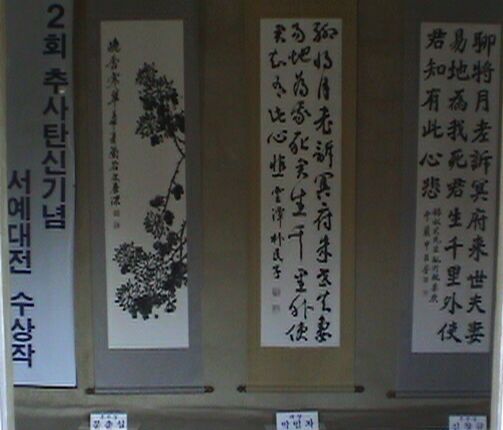 2회 추사탄신기념
서예대전 수상작
聊將月老訴冥府來世夫妻
易地為我死君生千里外使
君知有此心悲
聊將月老訴冥府來世夫妻
易地為我死君生千里外使
君知有此心悲
문춘심
박민자